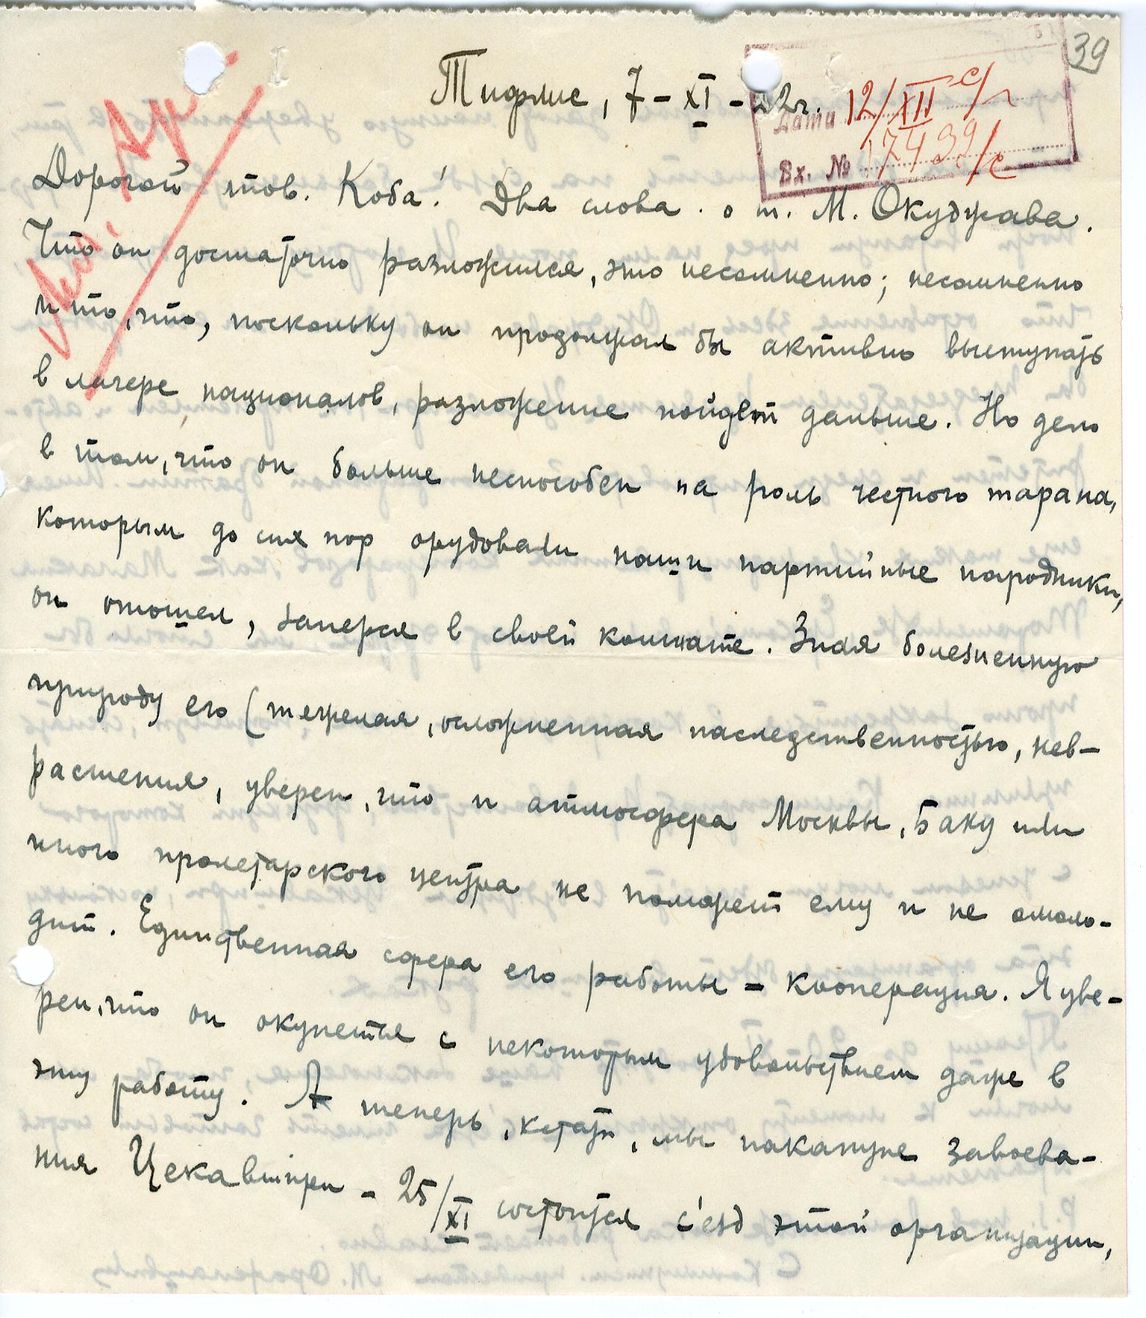 39
Тифлис, 7-XI-22г.
Дата 12/XII с/г
Вх. № 17439/с
Арх.
Дорогой тов. Коба! Два слова о т. М. Окуджава.
Что он достаточно разложился, это несомненно; несомненно
и то, что, поскольку он продолжал бы активно выступать
в лагере националов, разложение пойдет дальше. Но дело
в том, что он больше неспособен на роль честного тарана,
которым до сих пор орудовали наши партийные народники,
он отошел, заперся в своей комнате. Зная болезненную
природу его (тяжелая, осложненная наследственностью, нев-
растения, уверен, что и атмосфера Москвы, Баку или
иного пролетарского центра не поможет ему и не омоло-
дит. Единственная сфера его работы – кооперация. Я уве-
рен, что он окунется с некоторым удовольствием даже в
эту работу. А теперь, кстати, мы накануне завоева-
ния Цекавшири – 25/XI состоится с'езд этой организации,